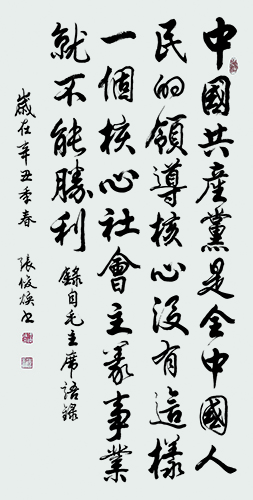 中國共產黨是全中國人
民的領導核心沒有這樣
一個核心社會主義事業
就不能勝利
錄自毛主席語錄
歲在辛丑季春
張俊煥書